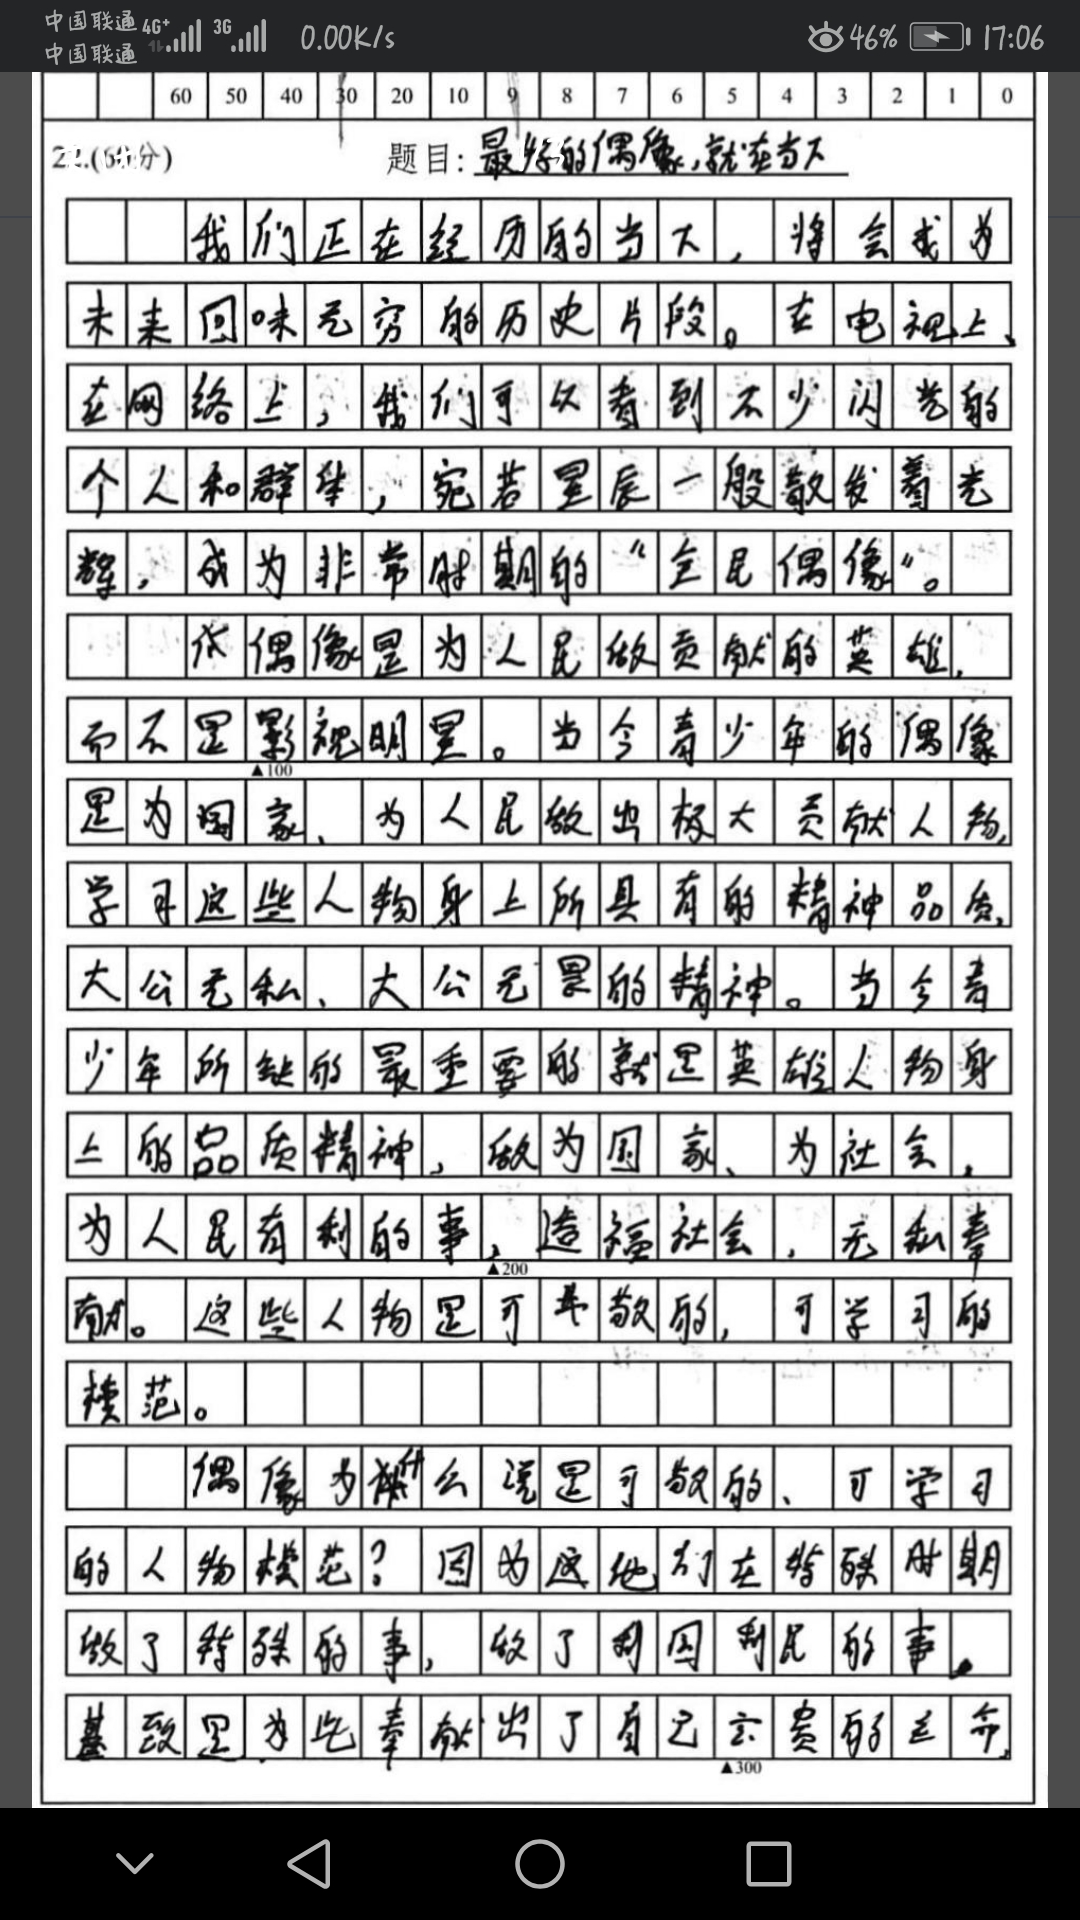 中国联通 4G+ 3G 0.00K/s 46% 17:06
中国联通
60 50 40 30 20 10 9 8 7 6 5 4 3 2 1 0
题目: 最好的偶像,就在当下
我们正在经历的当下,将会成为
未来回味无穷的历史片段。在电视上、
在网络上,我们可以看到不少闪光的
个人和群体,宛若星辰一般散发着光
辉,成为非常时期的“全民偶像”。
偶像是为人民做贡献的英雄,
而不是影视明星。当今青少年的偶像
▲100
是为国家、为人民做出极大贡献人物,
学习这些人物身上所具有的精神品质,
大公无私、大公无畏的精神。当今青
少年所缺的最重要的就是英雄人物身
上的品质精神,做为国家、为社会,
为人民有利的事,造福社会,无私奉
▲200
献。这些人物是可敬的,可学习的
模范。
偶像为什么说是可敬的、可学习
的人物模范?因为这他们在特殊时期
做了特殊的事,做了利国利民的事。
甚致是为此奉献出了自己宝贵的生命,
▲300